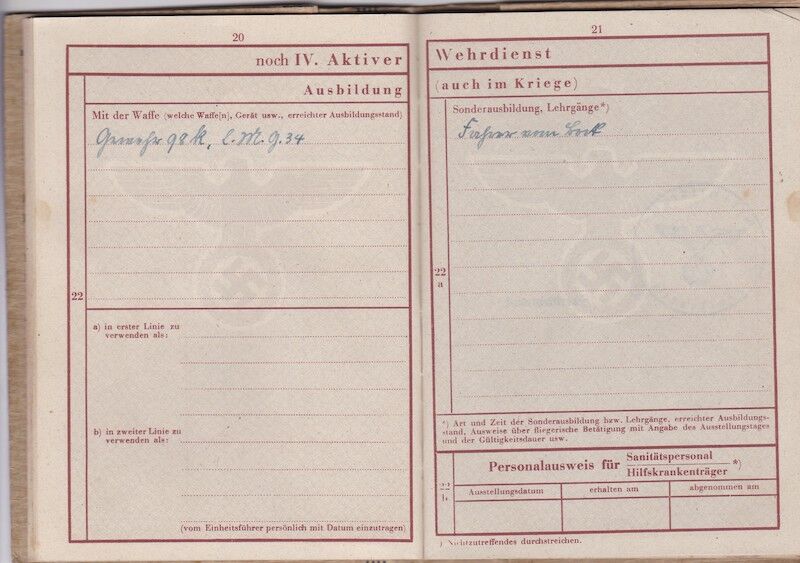 20
noch IV. Aktiver
Ausbildung
Mit der Waffe (welche Waffe[n], Gerät usw., erreichter Ausbildungsstand)
Gewehr 98 K, l. M. G. 34
22
a) in erster Linie zu
verwenden als:
b) in zweiter Linie zu
verwenden als:
(vom Einheitsführer persönlich mit Datum einzutragen)
21
Wehrdienst
(auch im Kriege)
Sonderausbildung, Lehrgänge*)
Fahrer vom Bock
22
a
*) Art und Zeit der Sonderausbildung bzw. Lehrgänge, erreichter Ausbildungs-
stand, Ausweise über fliegerische Betätigung mit Angabe des Ausstellungstages
und der Gültigkeitsdauer usw.
22
b
Personalausweis für Sanitätspersonal
Hilfskrankenträger *)
Ausstellungsdatum
erhalten am
abgenommen am
) Nichtzutreffendes durchstreichen.